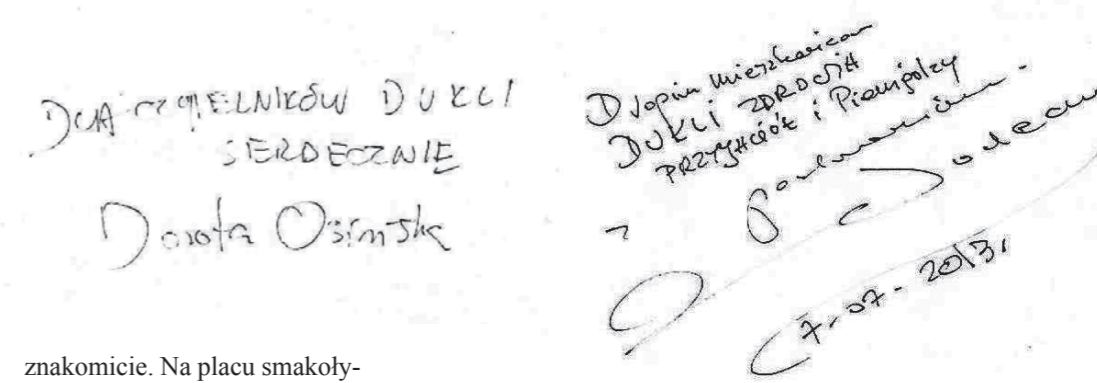 DLA CZYTELNIKÓW DUKLI
SERDECZNIE
Dorota Osińska
mieszkańcom
DUKLI ZDROWIA
PRZYJACIÓŁ i Pieniędzy
Z
7.07.2013r
znakomicie. Na placu smakoły-